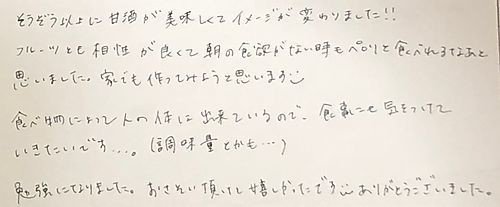 そうぞう以上に甘酒が美味しくてイメージが変わりました!!
フルーツとも相性が良くて朝の食欲がない時もペロリと食べれるなあと
思いました。家でも作ってみようと思います☺
食べ物によって人の体は出来ているので、食事にも気をつけて
いきたいです...。(調味量とかも...)
勉強になりました。おさそい頂けて嬉しかったです☺ありがとうございました。